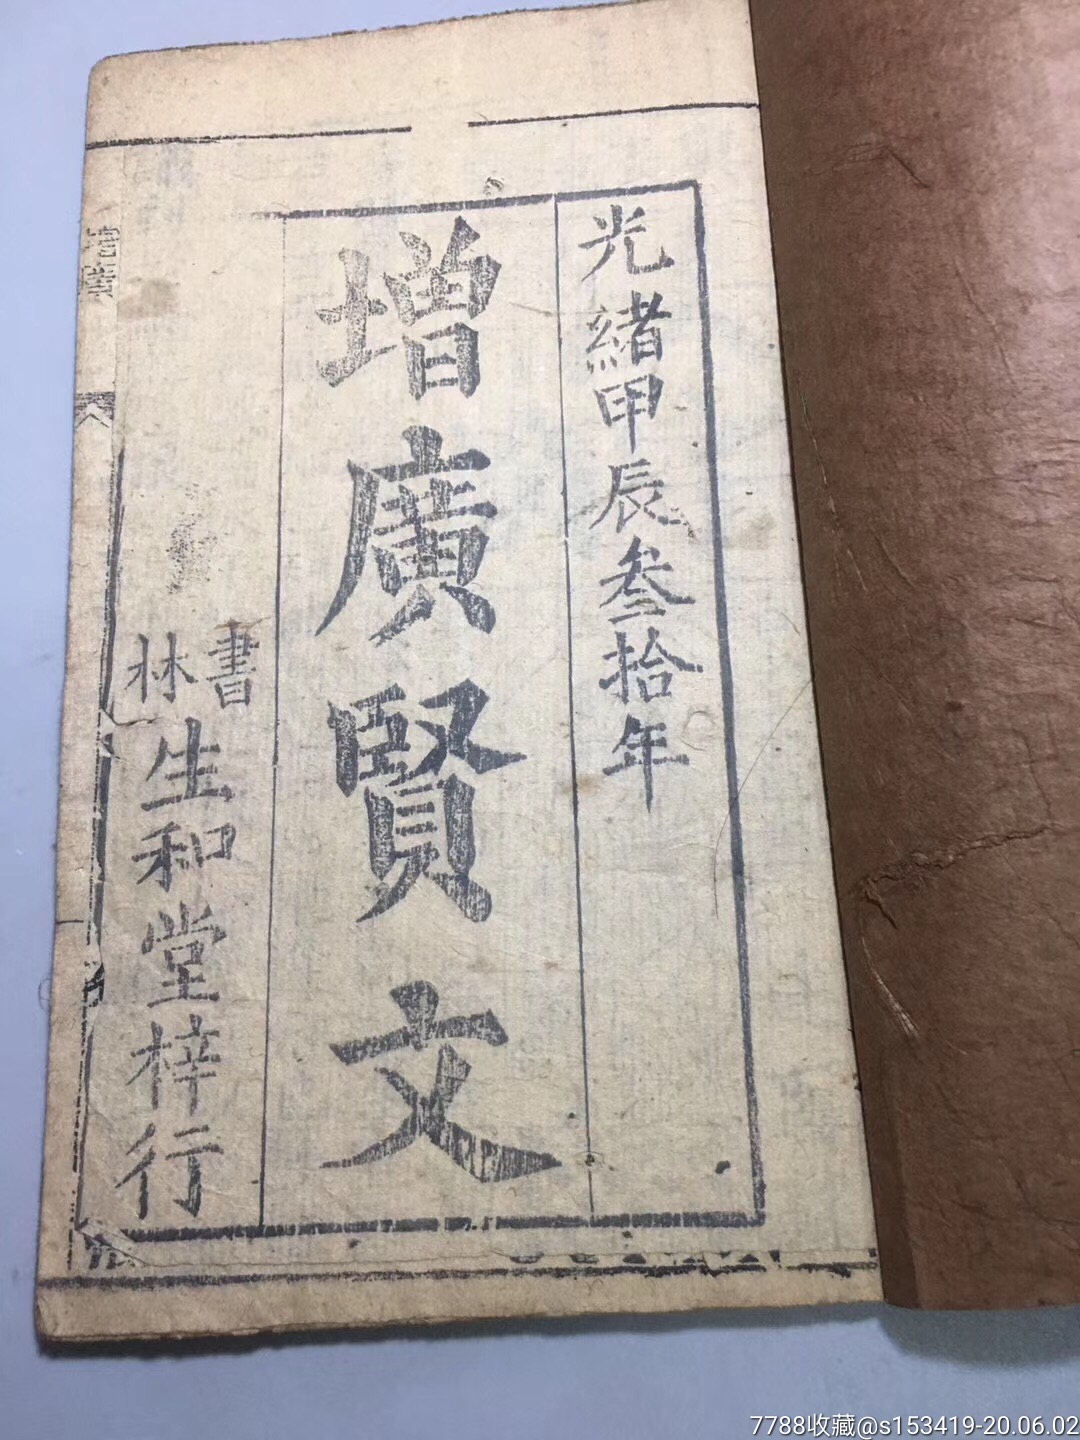 光緒甲辰叁拾年
增廣賢文
書林
生和堂梓行
7788收藏@s153419-20.06.02